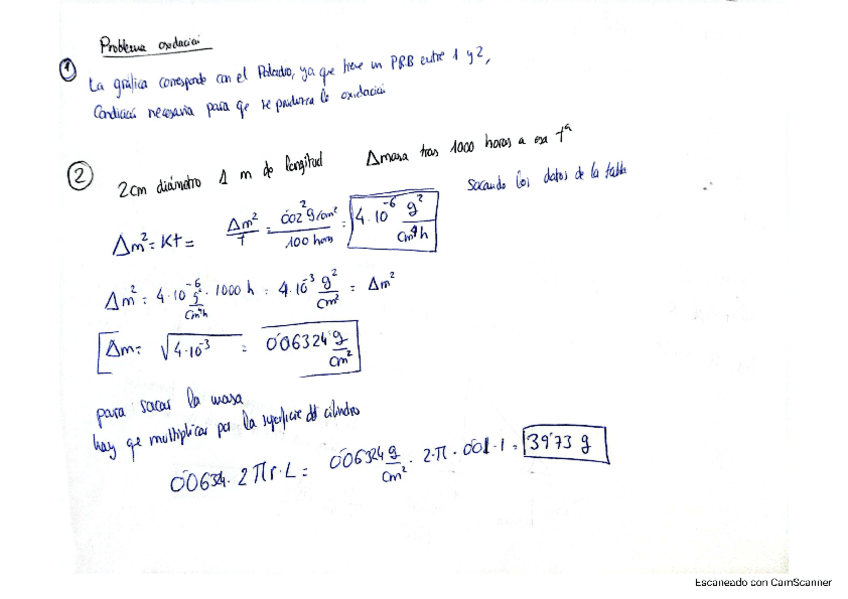 Problema oxidación
① La gráfica corresponde con el Paladio, ya que tiene un PRB entre 1 y 2,
Condición necesaria para que se produzca la oxidación
② 2cm diámetro 1 m de longitud Δmasa tras 1000 horas a esa Tª
Sacando los datos de la tabla
Δm² = Kt = Δm²/T = 0'02² g/cm²/100 horas = 4·10⁻⁶ g²/cm⁴h
Δm² = 4·10⁻⁶ g²/cm⁴h · 1000 h = 4·10⁻³ g²/cm² = Δm²
Δm = √4·10⁻³ = 0'06324 g/cm²
para sacar la masa
hay que multiplicar por la superficie del cilindro
0'0634 · 2πr·L = 0'06324 g/cm² · 2·π · 0'01·1 = 39'73 g
Escaneado con CamScanner